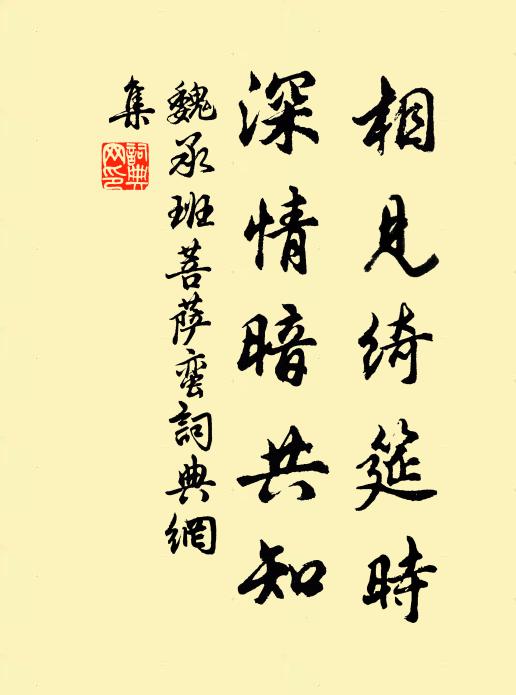 相見綺筵時
深情暗共知
魏承班菩薩蠻詞典網
集
詞典
網印